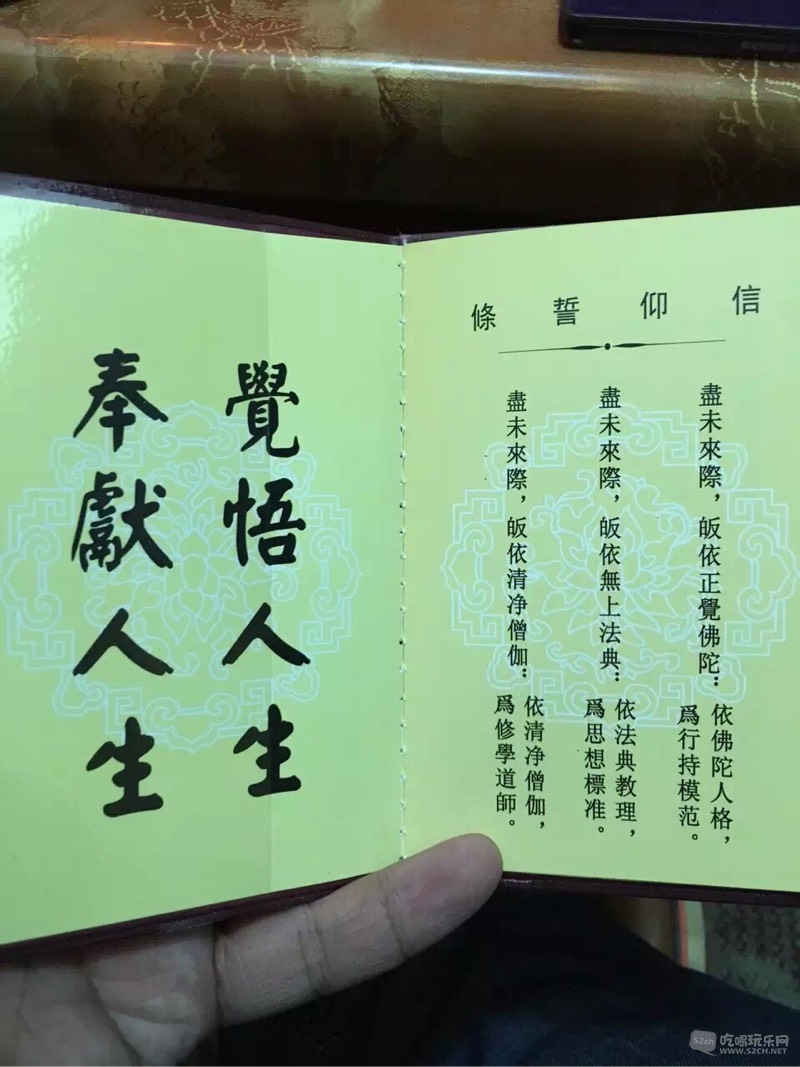 覺悟人生
奉獻人生
信仰誓條
盡未來際，皈依正覺佛陀：
依佛陀人格，
爲行持模范。
盡未來際，皈依無上法典：
依法典教理，
爲思想標准。
盡未來際，皈依清净僧伽：
依清净僧伽，
爲修學道師。
52ch 吃喝玩乐网
WWW.52CH.NET